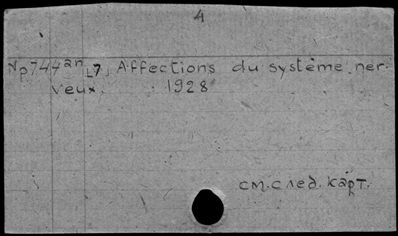 4
Np747an [7] Affections du système ner-
veux. 1928
см. след. карт.